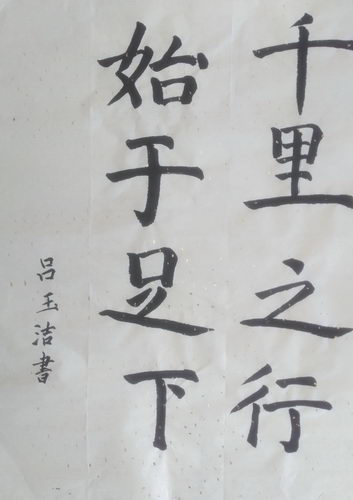 千里之行
始于足下
吕玉洁書